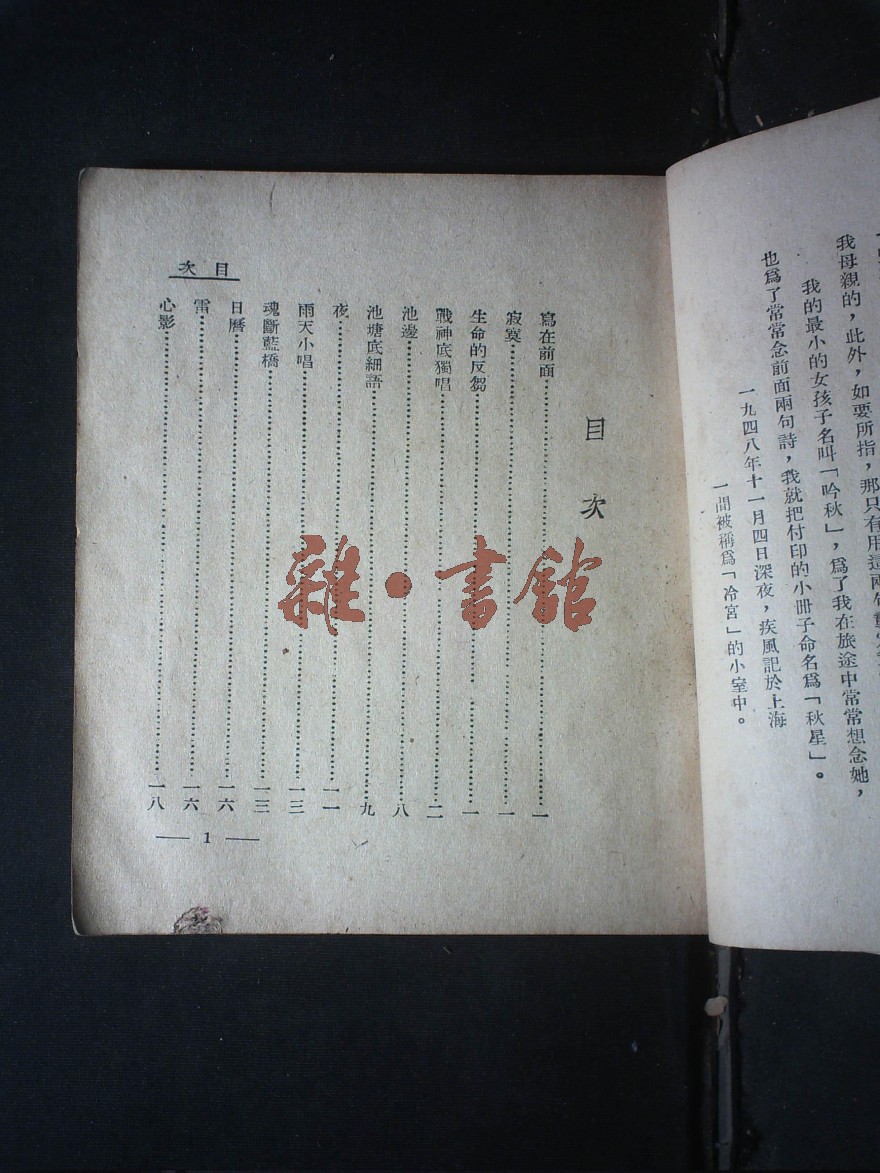 我母親的，此外，如要所指，那只有用這兩句
我的最小的女孩子名叫「吟秋」，爲了我在旅途中常常想念她，
也爲了常常念前面兩句詩，我就把付印的小冊子命名爲「秋星」。
一九四八年十一月四日深夜，疾風記於上海
一間被稱爲「冷宮」的小室中。
目次
寫在前面 一
寂寞 一
生命的反芻 一
戰神底獨唱 二
池邊 八
池塘底細語 九
夜 一一
雨天小唱 一三
魂斷藍橋 一三
日曆 一六
雷 一六
心影 一八
次目
— 1 —
雜·書館